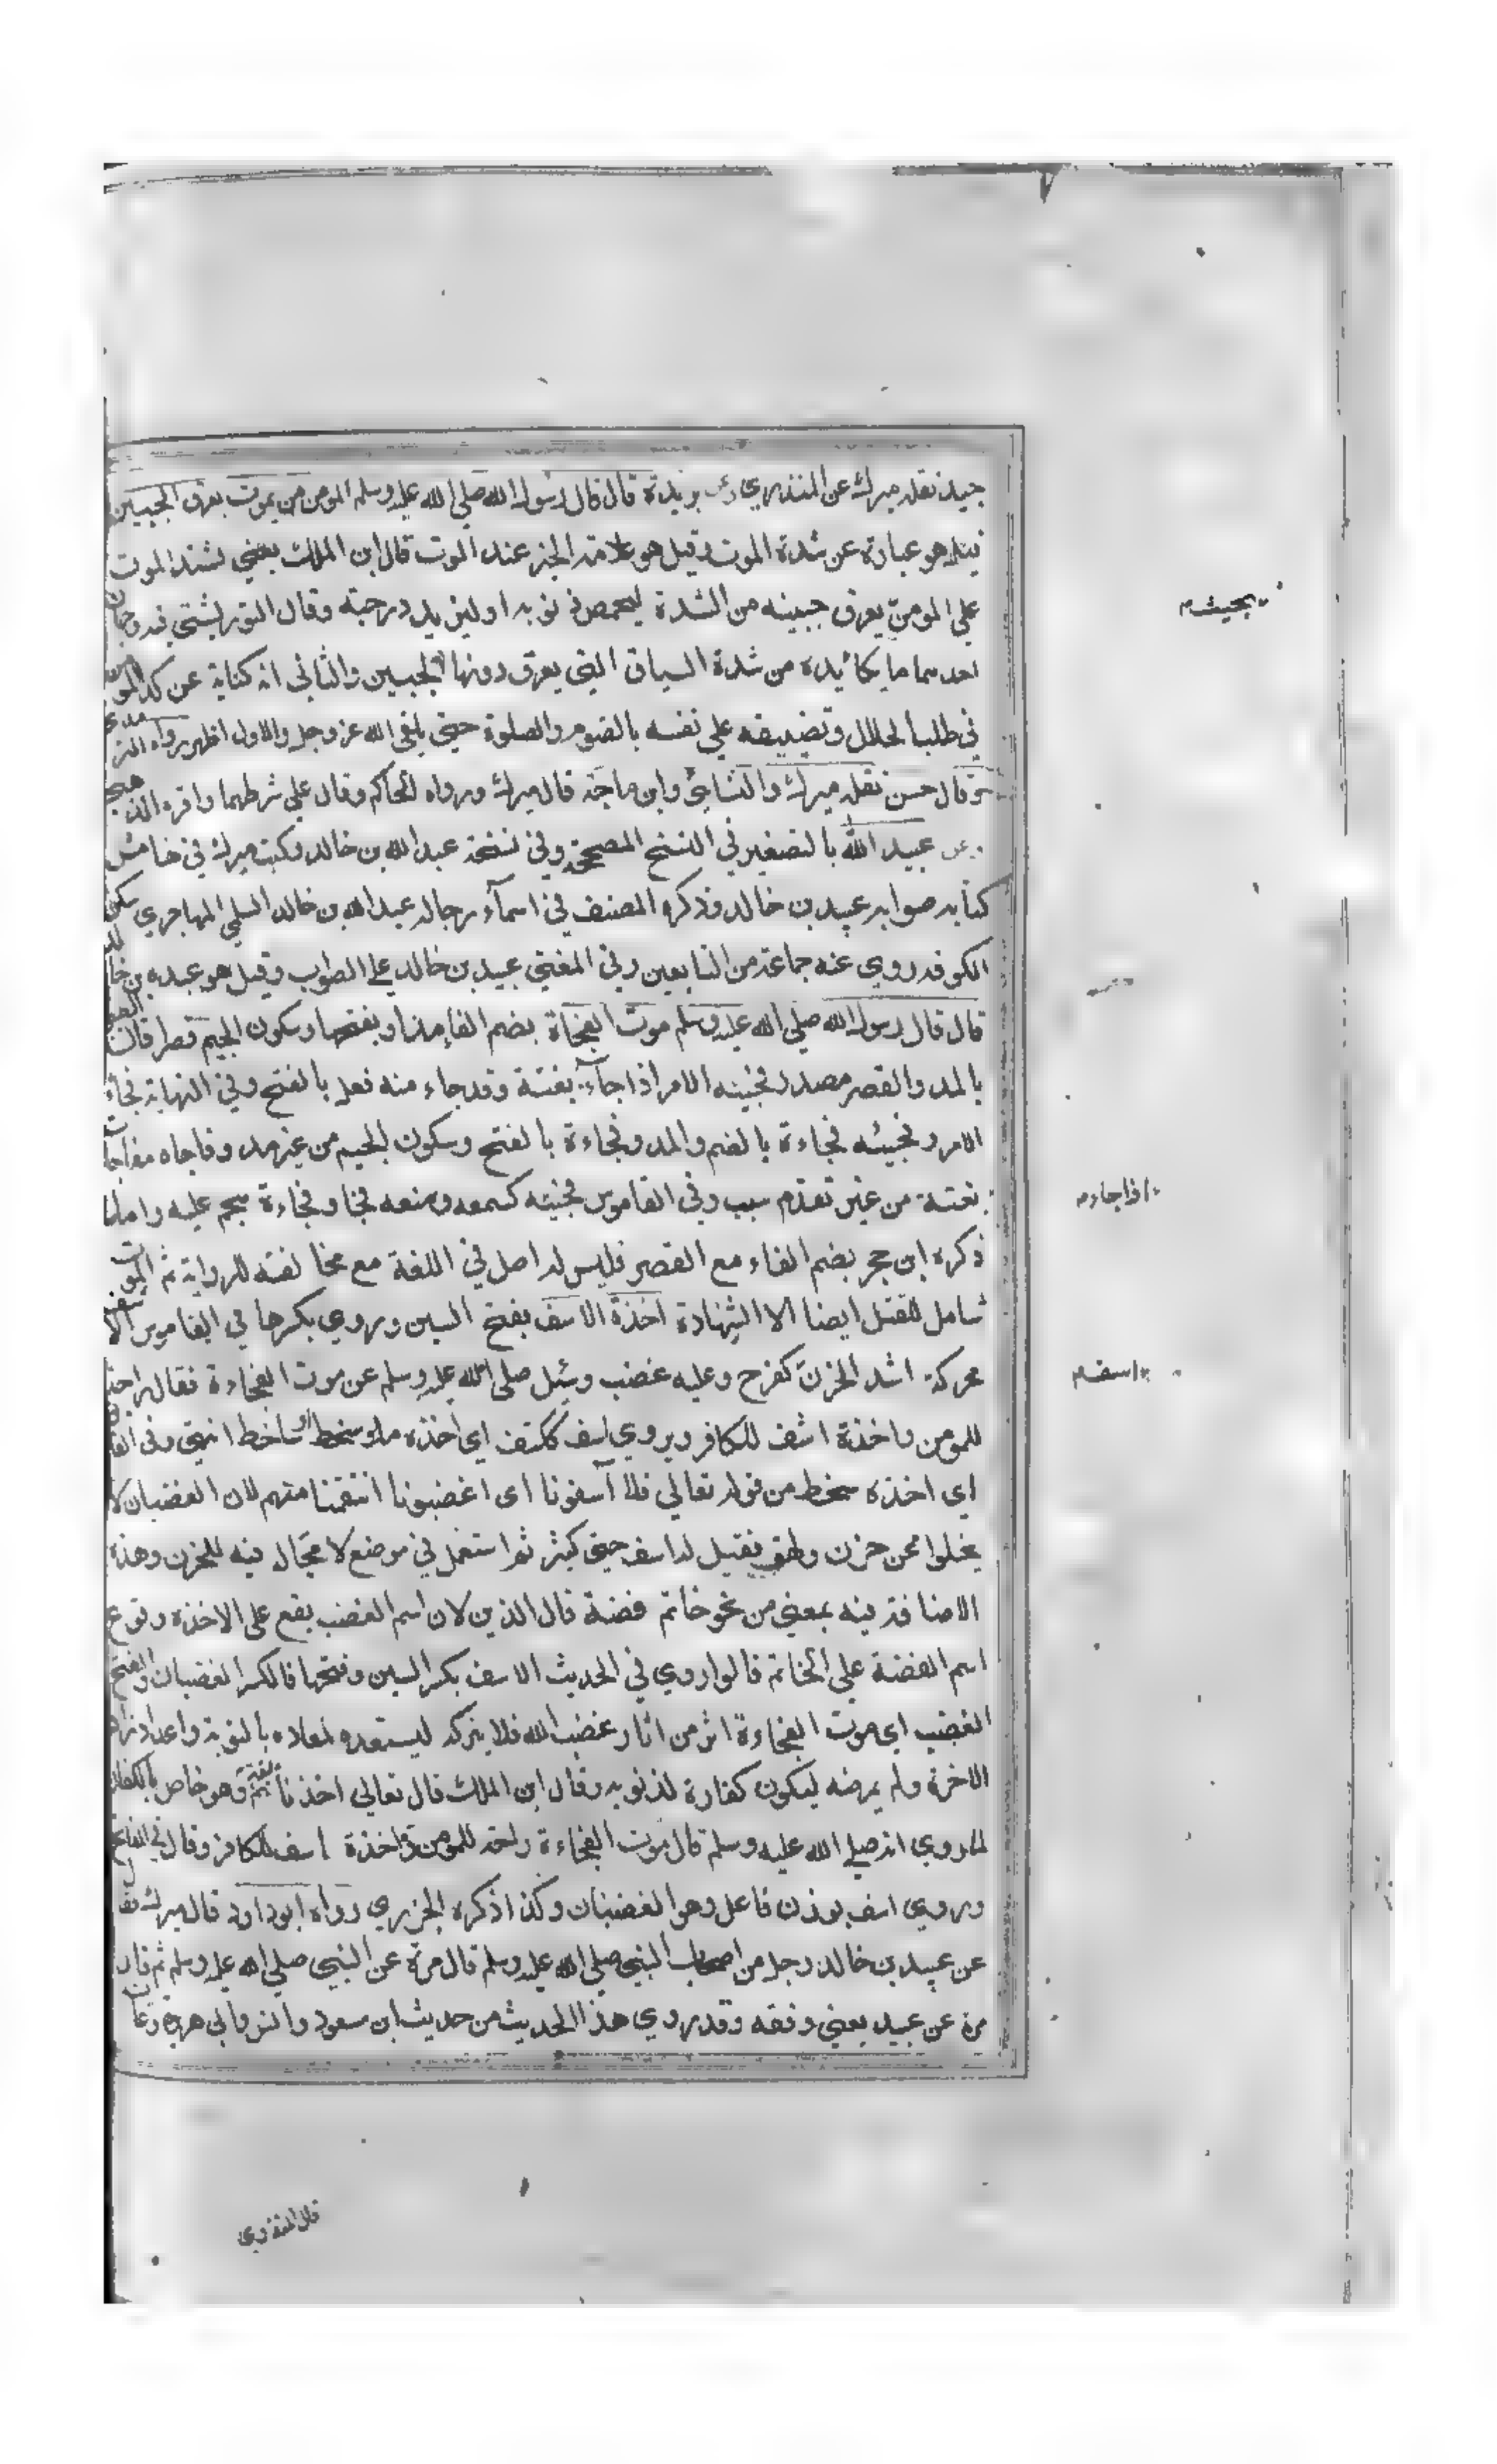 جيد نقله ميرك عن المنذري وعن بريدة قال قال رسول الله صلى الله عليه وسلم المومن من يموت بعرق الجبين
قيل هو عبارة عن شدة الموت وقيل هو علامة الخير عند الموت قال ابن الملك يعني تشتد الموت
على المومن يعرق جبينه من الشدة ليمحص ذنوبه او ليزيد درجته وقال التوربشتي فيه وجهان
احدهما ما يكابده من شدة السياق التي يعرق دونها الجبين والثاني انه كناية عن كد المومن
في طلب الحلال وتضييقه على نفسه بالصوم والصلوة حتى يلقى الله عز وجل والاول اظهر رواه الترمذي
وقال حسن نقله ميرك والنسائي وابن ماجة قال ميرك ورواه الحاكم وقال على شرطهما واقره الذهبي
وعن عبيد الله بالتصغير في النسخ المصححة وفي نسخة عبد الله بن خالد وكتب ميرك في هامش
كتابه صوابه عبيد بن خالد وذكره المصنف في اسمآء رجاله عبد الله بن خالد السلمي المهاجري سكن
الكوفة روى عنه جماعة من التابعين وفي المغني عبيد بن خالد على الصواب وقيل هو عبده بن خالد
قال قال رسول الله صلى الله عليه وسلم موت الفجاة بضم الفا مدا وبفتحها وسكون الجيم قصرا قال
بالمد والقصر مصدر فجئه الامر اذا جآء بغتة وقد جاء منه فعل بالفتح وفي النهاية فجأه
الامر وفجيئه فجاءة بالضم والمد وفجاءة بالفتح وسكون الجيم من غير مد وفاجاه مفاجآت
بغتة من غير تقدم سبب وفي القاموس فجئه كسمعه ومنعه فجا وفجاءة هجم عليه واما ما
ذكره ابن حجر بضم الفاء مع القصر فليس له اصل في اللغة مع مخالفته للرواية ثم الموت
شامل للقتل ايضا الا الشهادة اخذة الاسف بفتح السين وروي بكسرها في القاموس الاسف
محركة اشد الحزن كفرح وعليه غضب وسئل صلى الله عليه وسلم عن موت الفجاءة فقال راحة
للمومن واخذة اسف للكافر ويروى اسف ككتف اي اخذه سخط او ساخط انتهى وفي
اي اخذه سخط من قوله تعالى فلما آسفونا اى اغضبونا انتقمنا منهم لان الغضبان لا
يخلوا عن حزن ولهف فقيل له اسف حتى كثر ثم استعمل في موضع لا مجال فيه للحزن وهذه
الاضافة فيه بمعنى من نحو خاتم فضة قال الزين لان اسم الغضب يقع على الاخذه وقوع
اسم الفضة على الخاتم قالوا روي في الحديث الاسف بكسر السين وفتحها فالكسر الغضبان والفتح
الغضب اي موت الفجاءة اثر من اثار غضب الله فلا يتركه ليستعده لمعاده بالتوبة واعداد زاد
الاخرة ولم يمرضه ليكون كفارة لذنوبه وقال ابن الملك قال تعالى اخذناهم بغتة وهو خاص بالكفار
لما روي انه صلى الله عليه وسلم قال موت الفجاءة راحة للمومن واخذة اسف للكافر وقال في المفاتيح
وروي اسف بوزن فاعل وهو الغضبان وكذا ذكره الجزري رواه ابو داود قال ميرك
عن عبيد بن خالد رجل من اصحاب النبي صلى الله عليه وسلم قال مرة عن النبي صلى الله عليه وسلم ثم قال
مرة عن عبيد يعني وقفه وقد روي هذا الحديث من حديث ابن مسعود وانس وابي هريره وعائشة
قال المنذري
بحيث م
اذا جاء م
اسف م